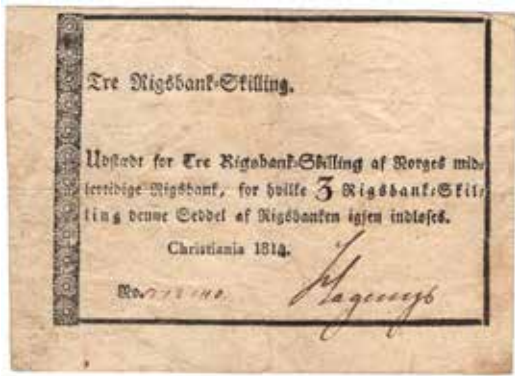 Tre Rigsbank-Skilling.
Udstædt for Tre Rigsbank-Skilling af Norges mid-
lertidige Rigsbank, for hvilke 3 Rigsbank-Skil-
ling denne Seddel af Rigsbanken igjen indløses.
Christiania 1814.
No.